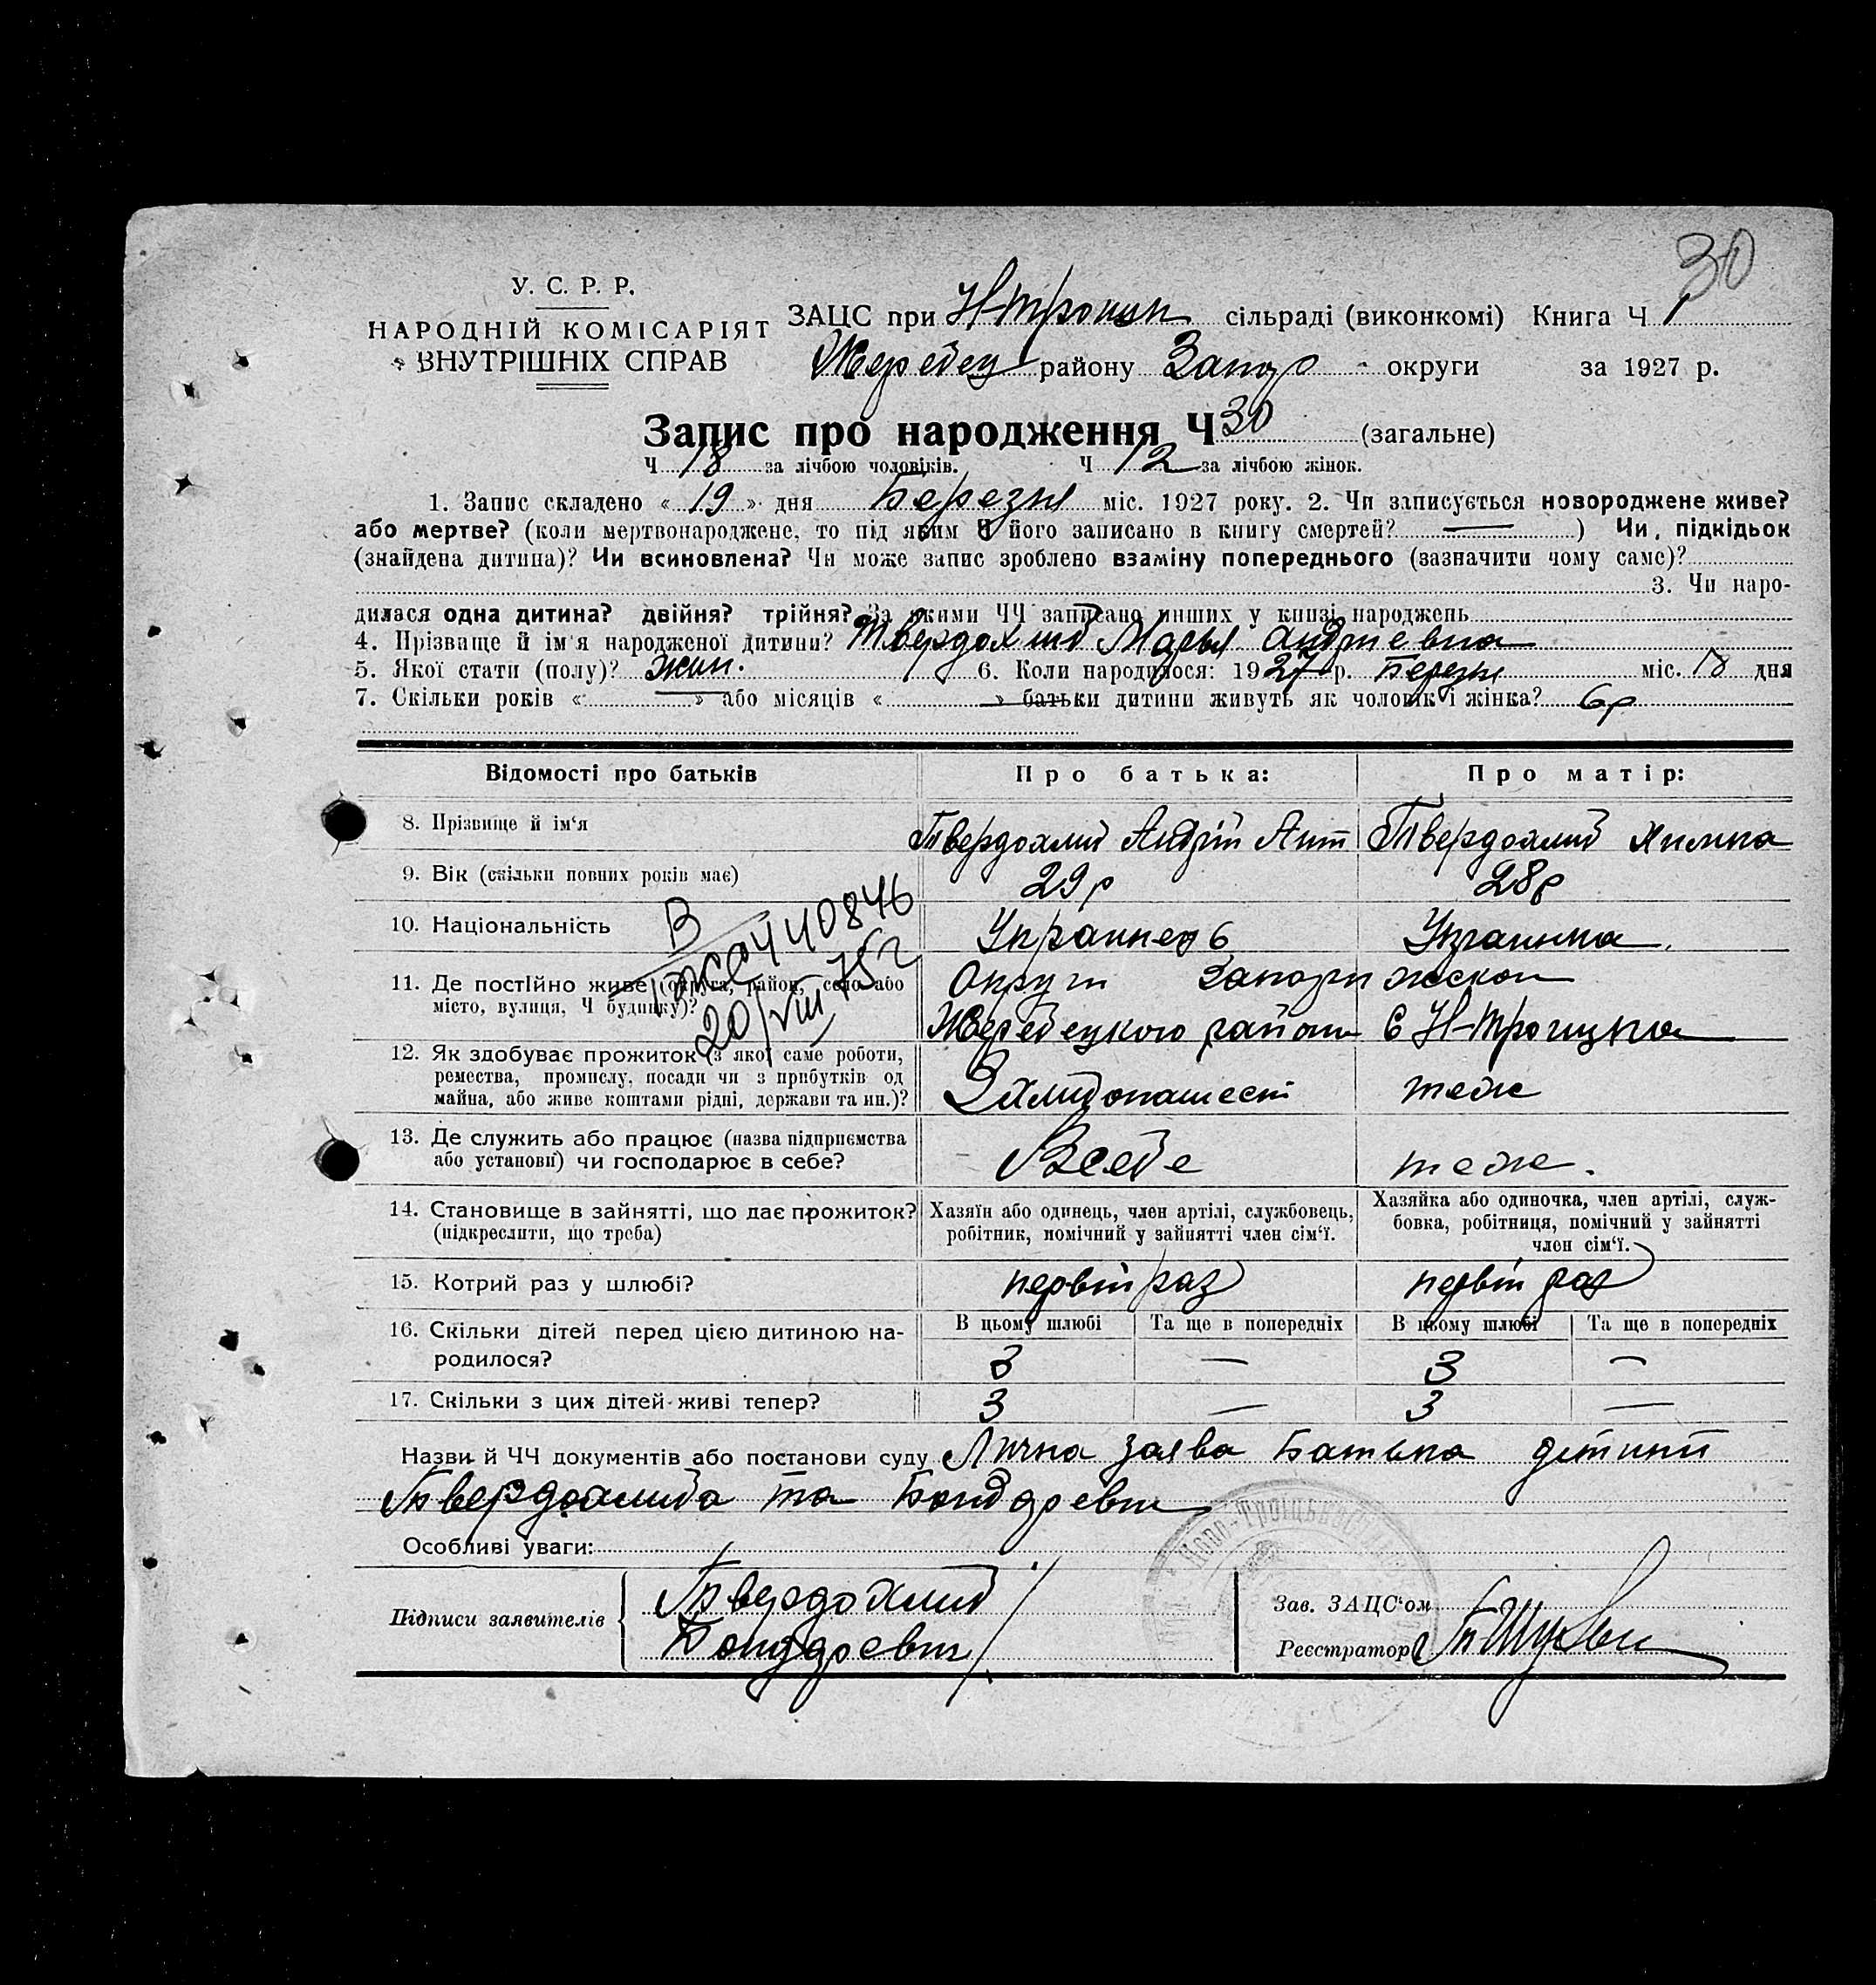 30
У. С. Р. Р.
НАРОДНІЙ КОМІСАРІЯТ
ВНУТРІШНІХ СПРАВ
ЗАЦС при Н-Троицк сільраді (виконкомі) Книга Ч 1
Жеребец району Запор округи за 1927 р.
Запис про народження Ч 30 (загальне)
Ч 18 за лічбою чоловіків. Ч 12 за лічбою жінок.
1. Запис складено « 19 » дня Березня міс. 1927 року. 2. Чи записується новороджене живе?
або мертве? (коли мертвонароджене, то під яким Ч його записано в книгу смертей? — ) Чи, підкідьок
(знайдена дитина)? Чи всиновлена? Чи може запис зроблено взаміну попереднього (зазначити чому саме)?
3. Чи наро-
дилася одна дитина? двійня? трійня? За якими ЧЧ записано инших у книзі народжень
4. Прізвище й ім'я народженої дитини? Твердохлиб Марья Андриевна
5. Якої стати (полу)? жин. 6. Коли народилося: 1927 р. Березня міс. 18 дня
7. Скільки років « » або місяців « » батьки дитини живуть як чоловік і жінка? 6р
Відомості про батьків Про батька: Про матір:
8. Прізвище й ім'я Твердохлиб Андрій Ант Твердохлиб Химка
9. Вік (скільки повних років має) 29р 28р
10. Національність Украинец Украинка
В
440846
20/VIII 75г
11. Де постійно живе (округа, район, село або
місто, вулиця, Ч будинку)?
Округи Запорижскои
Жеребецкого район С Н-Троицка
12. Як здобуває прожиток (з якої саме роботи,
ремества, промислу, посади чи з прибутків од
майна, або живе коштами рідні, держави та ин.)?
теж
13. Де служить або працює (назва підприємства
або установи) чи господарює в себе?
Всебе теж.
14. Становище в зайнятті, що дає прожиток?
(підкреслити, що треба)
Хазяїн або одинець, член артілі, службовець,
робітник, помічний у зайнятті член сім'ї.
Хазяйка або одиночка, член артілі, служ-
бовка, робітниця, помічний у зайнятті
член сім'ї.
15. Котрий раз у шлюбі? первій раз первій раз
16. Скільки дітей перед цією дитиною на-
родилося?
В цьому шлюбі Та ще в попередніх В цьому шлюбі Та ще в попередніх
3 — 3 —
17. Скільки з цих дітей живі тепер? 3 — 3 —
Назви й ЧЧ документів або постанови суду Лична заява Батька дітини
Твердохлиба та
Особливі уваги:
Підписи заявителів
Твердохлиб
Зав. ЗАЦС'ом
Реєстратор